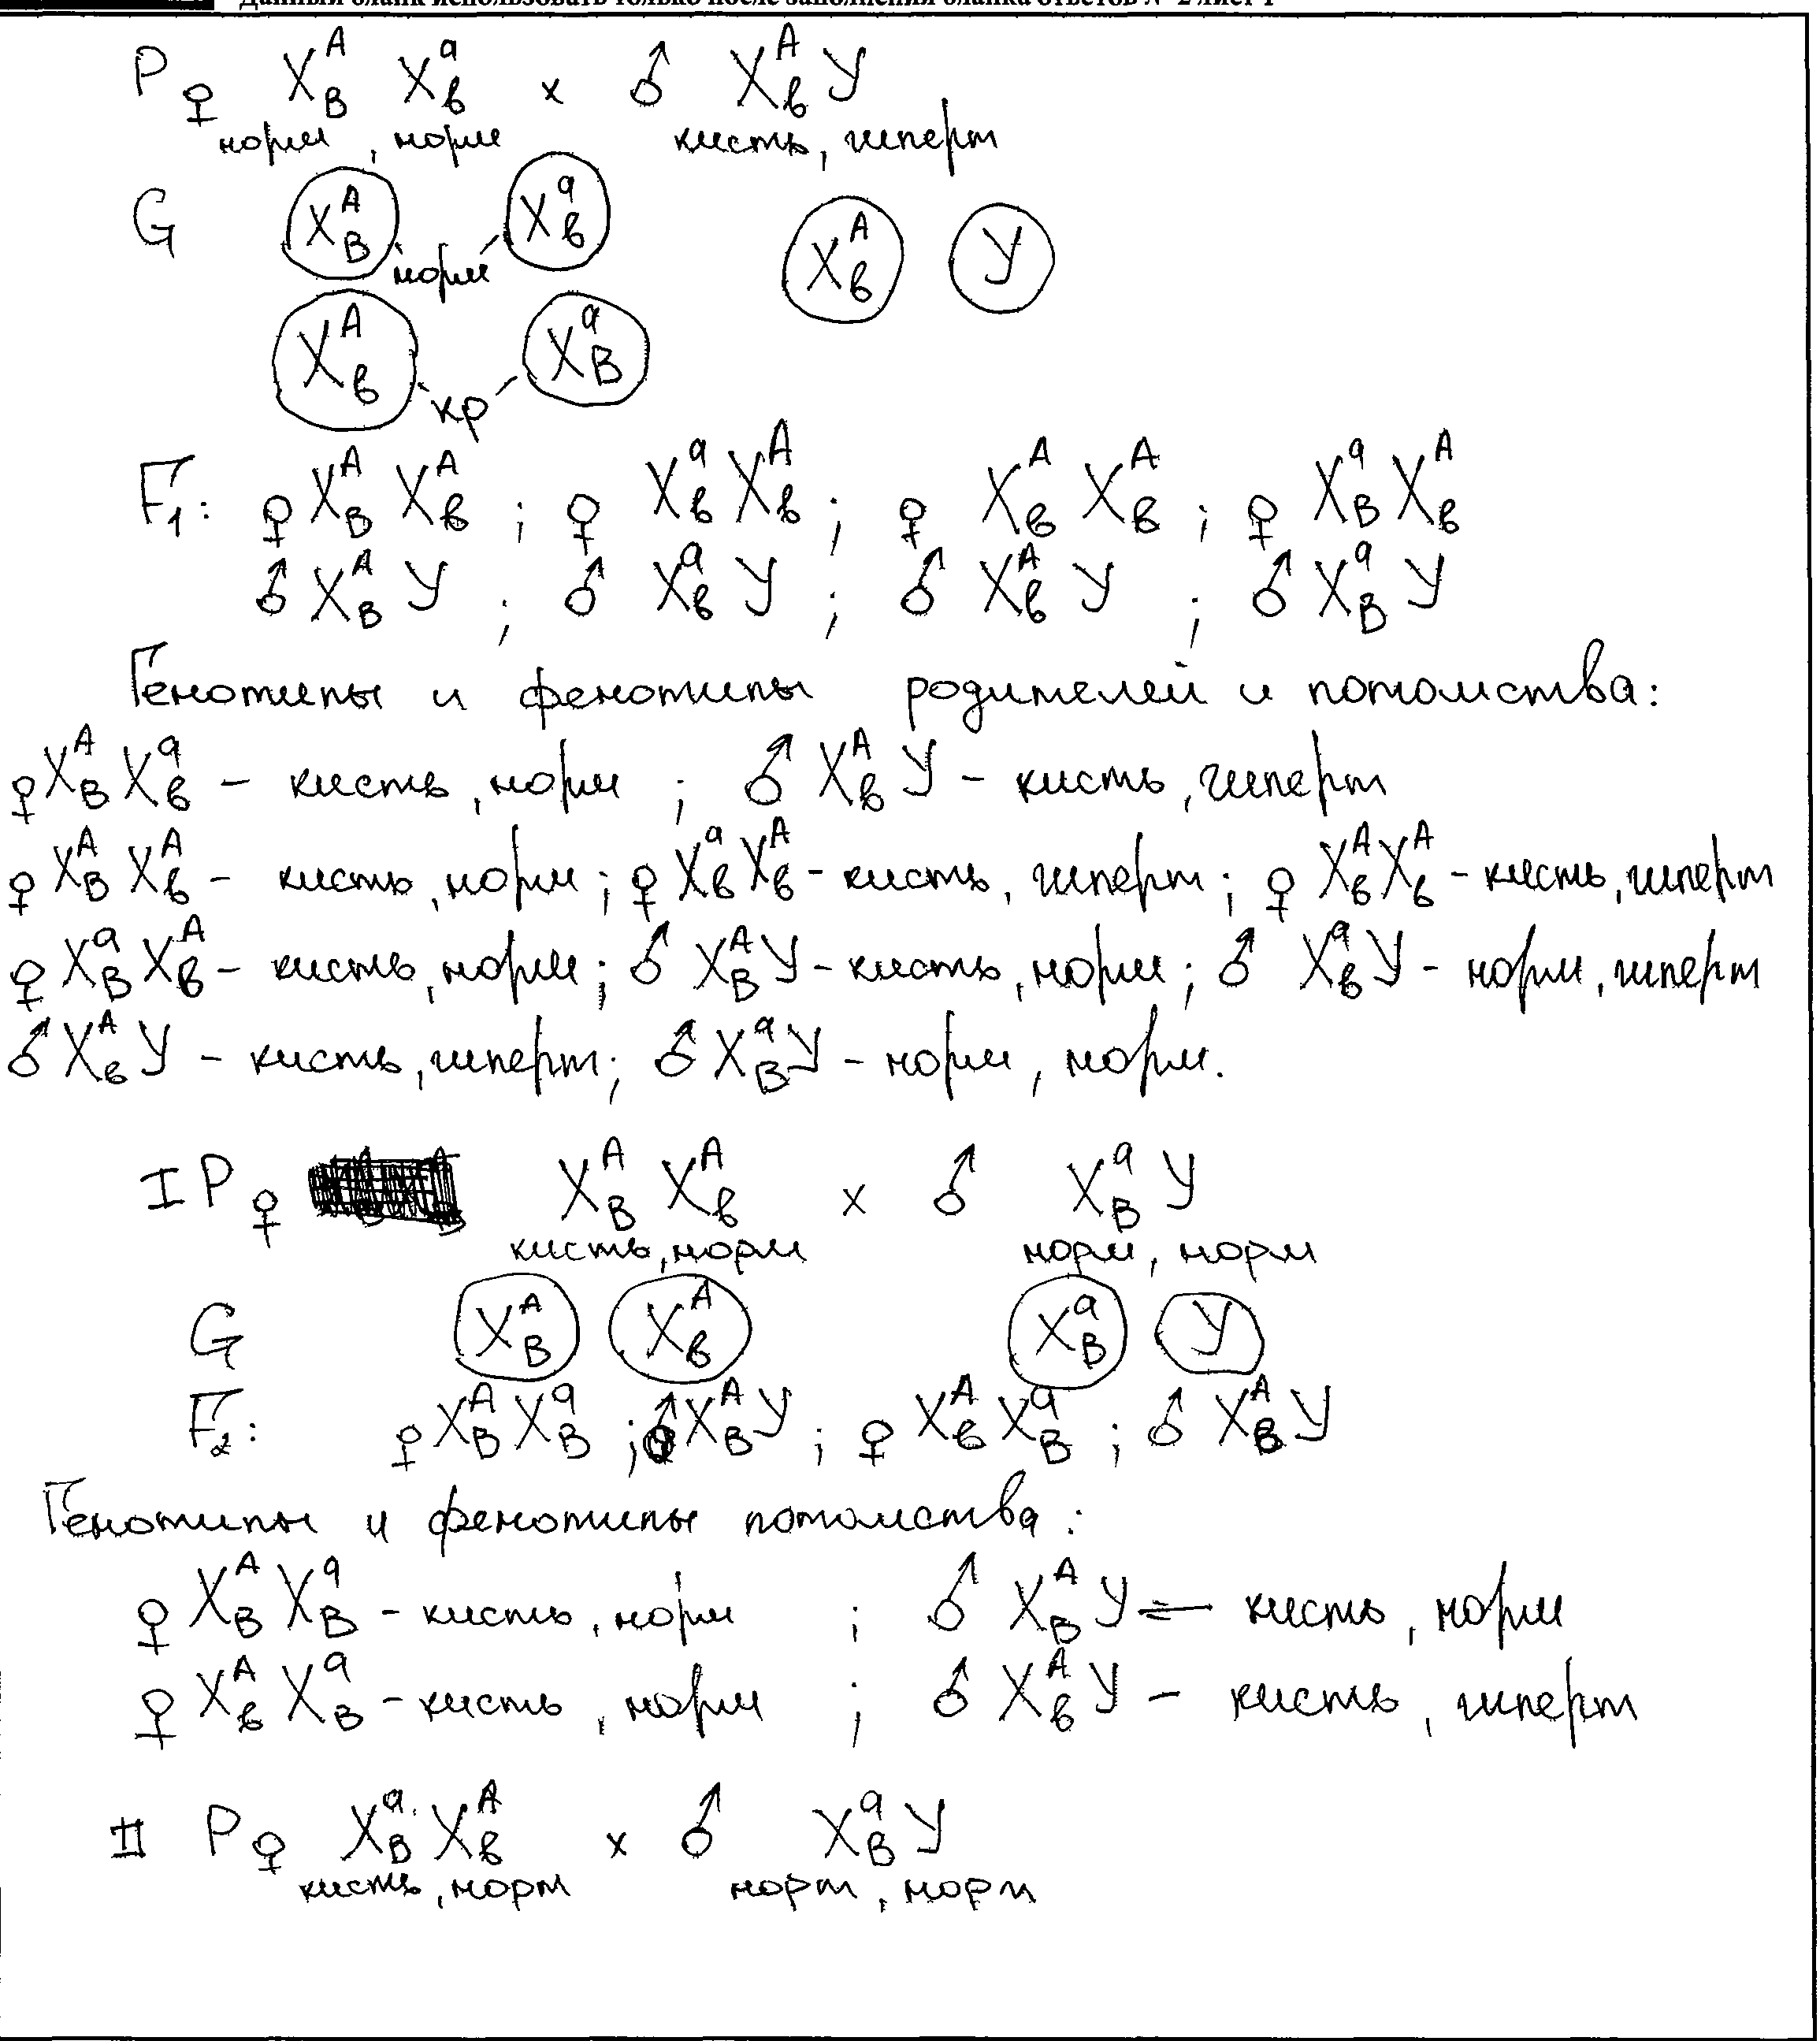 Данный бланк использовать только после заполнения бланка ответов № 2 лист 1
P ♀ X^A_B X^a_b x ♂ X^A_b У
норм, норм кисть, гиперт
G X^A_B X^a_b X^A_b У
норм
X^A_b X^a_B
кр
F₁: ♀ X^A_B X^A_b ; ♀ X^a_b X^A_b ; ♀ X^A_b X^A_b ; ♀ X^a_B X^A_b
♂ X^A_B У ; ♂ X^a_b У ; ♂ X^A_b У ; ♂ X^a_B У
Генотипы и фенотипы родителей и потомства:
♀ X^A_B X^a_b – кисть, норм ; ♂ X^A_b У – кисть, гиперт
♀ X^A_B X^A_b – кисть, норм; ♀ X^a_b X^A_b – кисть, гиперт; ♀ X^A_b X^A_b – кисть, гиперт
♀ X^a_B X^A_b – кисть, норм; ♂ X^A_B У – кисть, норм; ♂ X^a_b У – норм, гиперт
♂ X^A_b У – кисть, гиперт; ♂ X^a_B У – норм, норм.
I P ♀ X^A_B X^A_b x ♂ X^a_B У
кисть, норм норм, норм
G X^A_B X^A_b X^a_B У
F₂: ♀ X^A_B X^a_B ; ♂ X^A_B У ; ♀ X^A_b X^a_B ; ♂ X^A_b У
Генотипы и фенотипы потомства:
♀ X^A_B X^a_B – кисть, норм ; ♂ X^A_B У – кисть, норм
♀ X^A_b X^a_B – кисть, норм ; ♂ X^A_b У – кисть, гиперт
II P ♀ X^a_B X^A_b x ♂ X^a_B У
кисть, норм норм, норм